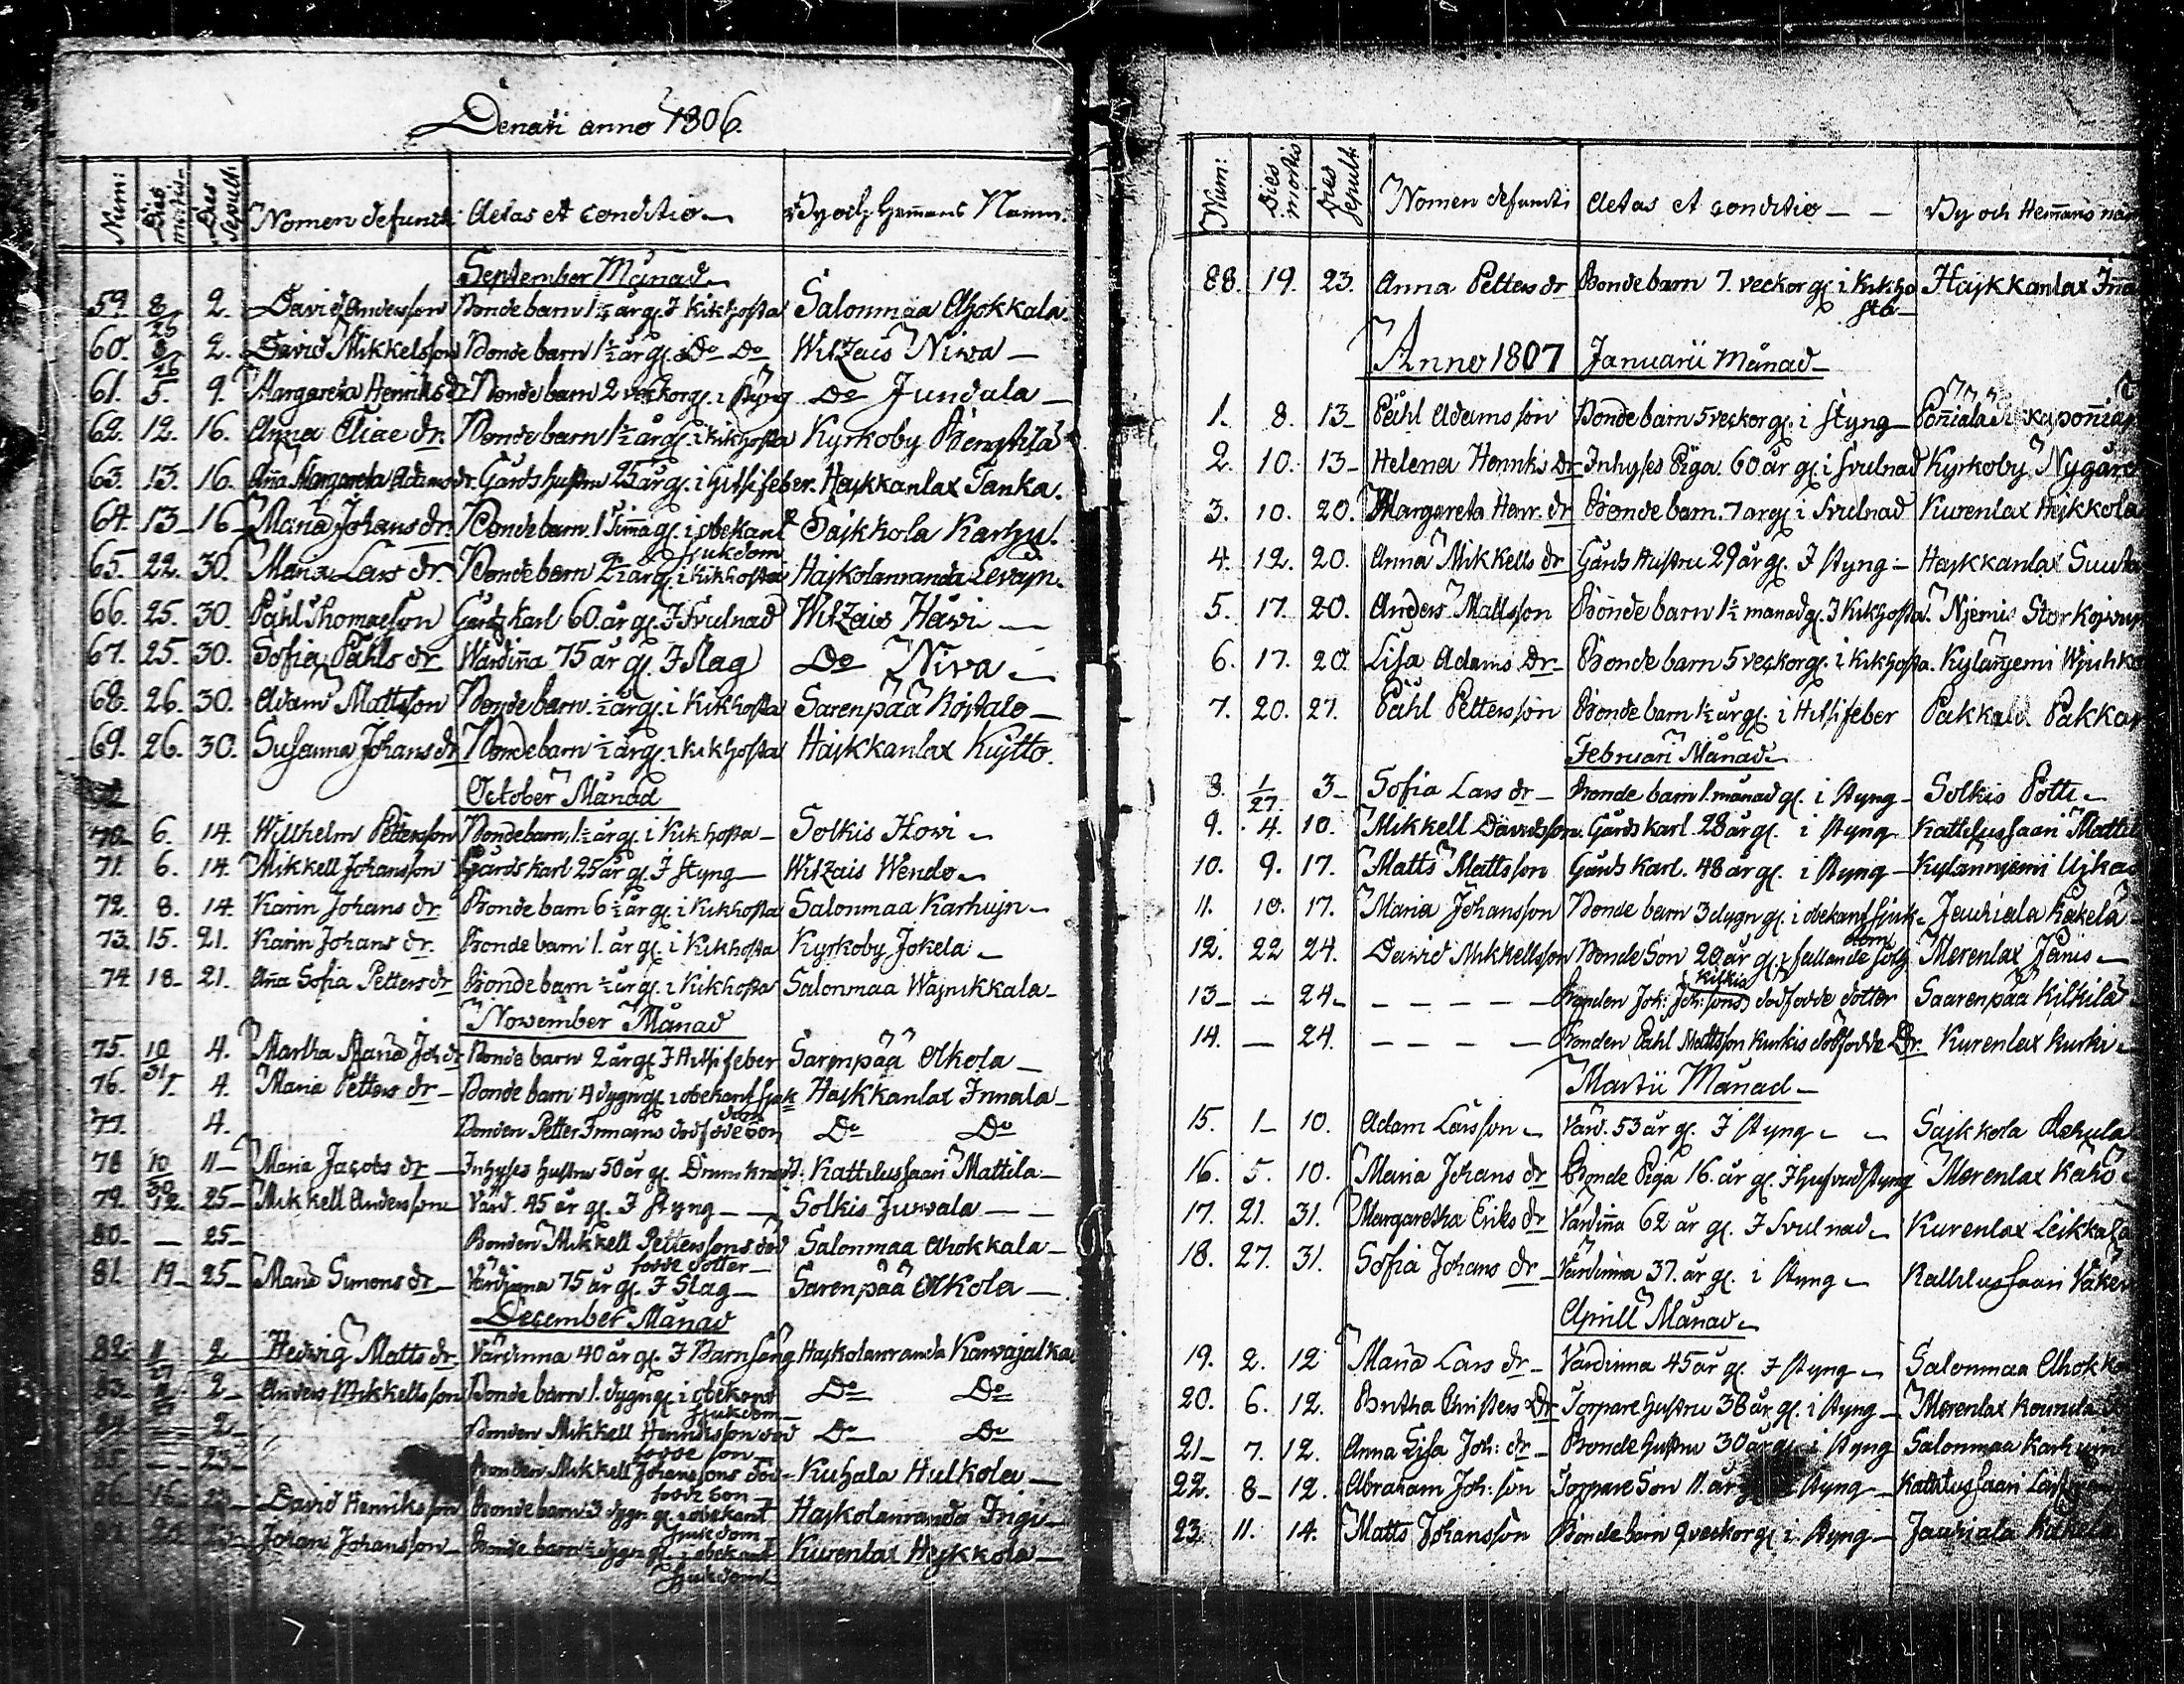 Denati anno 1806.
Num: Dies mortis Dies Sepult: Nomen defuncti Aetas et conditio By och Hemans Namn.
September Månad
59. 8/28 2. David Andersson Bonde barn 1 1/4 år gl. I Kikhosta Salonmaa Ahokkala.
60. 8/26 2. David Mikkelsson Bonde barn 1 1/2 år gl. i Do Do Witzais Niwa
61. 5. 9. Margareta Henriks dr Bonde barn 2 veckor gl. i styng Do Jundala
62. 12. 16. Anna Eliae dr. Bonde barn 1 1/2 år gl. i kikhosta Kyrkoby
63. 13. 16. Aña Margareta Adams dr. Gårds hustru 25 år gl. i Hitsifeber. Hajkkanlax Tanka.
64. 13 16 Maria Johans dr. Bonde barn 1 Timma gl. i obekant sjukdom Sajkkola Karhu.
65. 22. 30. Maria Lars dr. Bonde barn 2 1/2 år gl. i kikhosta Hajkolanranda
66. 25. 30. Påhl Thomasson Gårdz karl 60 år gl. I Svulnad Witzais Häwi
67. 25. 30. Sofia Påhls dr Wärdiña 75 år gl. I Slag Do Niva
68. 26. 30. Adam Mattsson Bonde barn 1/2 år gl. i Kikhosta Sarenpää Rojtalo
69. 26. 30. Susanna Johans dr Bonde barn 1/2 år gl. i Kikhosta Hajkkanlax Kujtto.
October Månad
70. 6. 14. Willhelm Pettersson Bonde barn 1 1/2 år gl. i Kikhosta Solkis Howi
71. 6. 14. Mikkell Johansson Gårds karl 25 år gl. I Styng Witzais Wendo
72. 8. 14. Karin Johans dr Bonde barn 6 1/2 år gl. i Kikhosta Salonmaa Karhujn
73. 15. 21. Karin Johans dr. Bonde barn 1. år gl. i Kikhosta Kyrkoby Jokela
74 18 21. Aña Sofia Petters dr Bonde barn 1/2 år gl. i Kikhosta Salonmaa Wajnikkala
November Månad
75. 10/31 4. Martha Maria Joh dr Bonde barn 2 år gl. I Hitsifeber Sarenpää Olkola
76. 1. 4. Maria Petters dr Bonde barn 4 dygn gl. i obekant sjukdom Hajkkanlax Innala
77. 4. Bonden Petter Innains dödfödde son Do Do
78 10/30 11 Maria Jacobs dr Inhyses hustru 50 år gl. Kattilussaari Mattila
79. 12. 25 Mikkell Andersson Värd. 45 år gl. I Styng Solkis Juwala
80 25 Bonden Mikkell Petterssons död födde dotter Salonmaa Ahokkala
81. 19 25 Maria Simons dr Värdinna 75 år gl. I Slag Sarenpää Olkola
December Månad
82. 11/27 2 Hedvig Matts dr. Värdinna 40 år gl. I Barnsäng Hajkolanranda Karvajalka
83 2 Anders Mikkellsson Bonde barn 1. dygn gl. i obekant sjukdom Do Do
84 2 Bonden Mikkell Henriksson död födde son Do Do
85 23 Bonden Mikkell Johanssons död födde son Kuhala Hulkola
86 16 David Henriksson Bonde barn 3 dygn gl. i obekant sjukdom Hajkolanranda Ingi
Johan Johansson Bonde barn 1/2 dygn gl. i obekant sjukdom Kurenlax Hejkkola
Num: Dies mortis Dies Sepult: Nomen defuncti Aetas et conditio By och Hemans nam
88. 19. 23. Anna Petters dr Bonde barn 7. veckor gl. i Kikhosta Hajkkanlax
Anno 1807 Januarii Månad
1. 8. 13 Påhl Adamsson Bonde barn 5 veckor gl. i styng
2. 10. 13 Helena Henriks dr Inhyses Piga 60 år gl. i Svulnad Kyrkoby Nygård
3. 10. 20. Margareta Henr. dr Bonde barn. 7 år gl. i Svulnad Kurenlax Hejkkola
4. 12. 20. Anna Mikkells dr Gårds Hustru 29 år gl. I styng Hajkkanlax
5. 17. 20. Anders Mattsson Bonde barn 1 1/2 månad gl. I Kikhosta. Njemis
6. 17. 20. Lisa Adams dr Bonde barn 5 veckor gl. i Kikhosta. Kylänjemi
7. 20. 27. Påhl Pettersson Bonde barn 1 1/2 år gl. i Hitsifeber Pakkala
Februari Månad
8. 1/27. 3 Sofia Lars dr Bonde barn 1. månad gl. i styng Solkis Potti
9. 4. 10. Mikkell Davidsson Gårds karl 28 år gl. i styng Kattilussaari
10. 9. 17. Matts Mattsson Gårds karl. 48 år gl. i styng Kylännjemi
11. 10. 17. Maria Johansson Bonde barn 3 dygn gl. i obekant sjukdom Jauhiala Käkelä
12. 22 24. David Mikkellsson Bonde Son 20 år gl. fallande sotg Merenlax Jänis
13 24 Bonden Joh: Joh:sons Kilkis dödfödde dotter Saarenpää Kilkilä
14. 24. Bonden Påhl Mattsson Kurkis dödfödde Dr. Kurenlax Kurki
Martii Månad
15. 1 10. Adam Larsson Värd. 53 år gl. I styng Sajkkola
16. 5. 10. Maria Johans dr Bonde Piga 16. år gl. I hufvudstyng Merenlax Kaho
17. 21. 31. Margaretha Eriks dr Värdiña 62 år gl. I Svulnad Kurenlax Leikkala
18. 27. 31. Sofia Johans dr Värdinna 37. år gl. i styng Kattilussaari
Aprill Månad
19. 2. 12 Maria Lars dr Värdinna 45 år gl. I styng Salonmaa
20. 6. 12. Britha Christers Dr Torpare hustru 38 år gl. i styng Merenlax
21 7. 12. Anna Lisa Joh: dr Bonde hustru 30 år gl. i styng Salonmaa
22. 8 12. Abraham Joh: son Torpare Son 11. år styng Kattilussaari
23. 11. 14. Matts Johansson Bonde barn 9 veckor gl. i styng Jauhiala